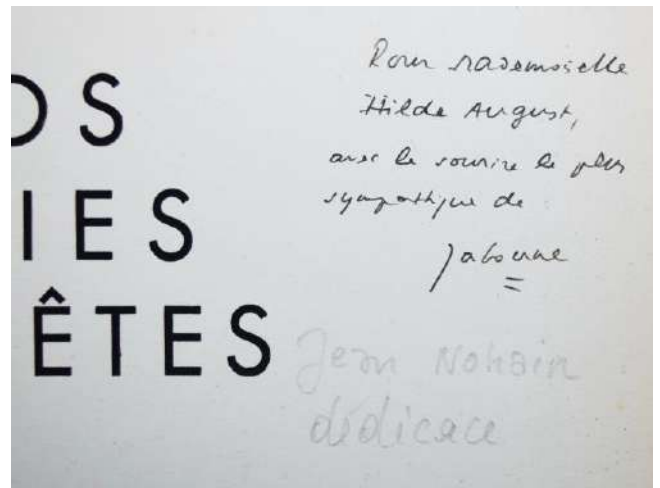 OS
IES
ÊTES
Pour Mademoiselle
Hilde August,
avec le sourire le plus
sympathique de
Jaboune
Jean Nohain
dédicace